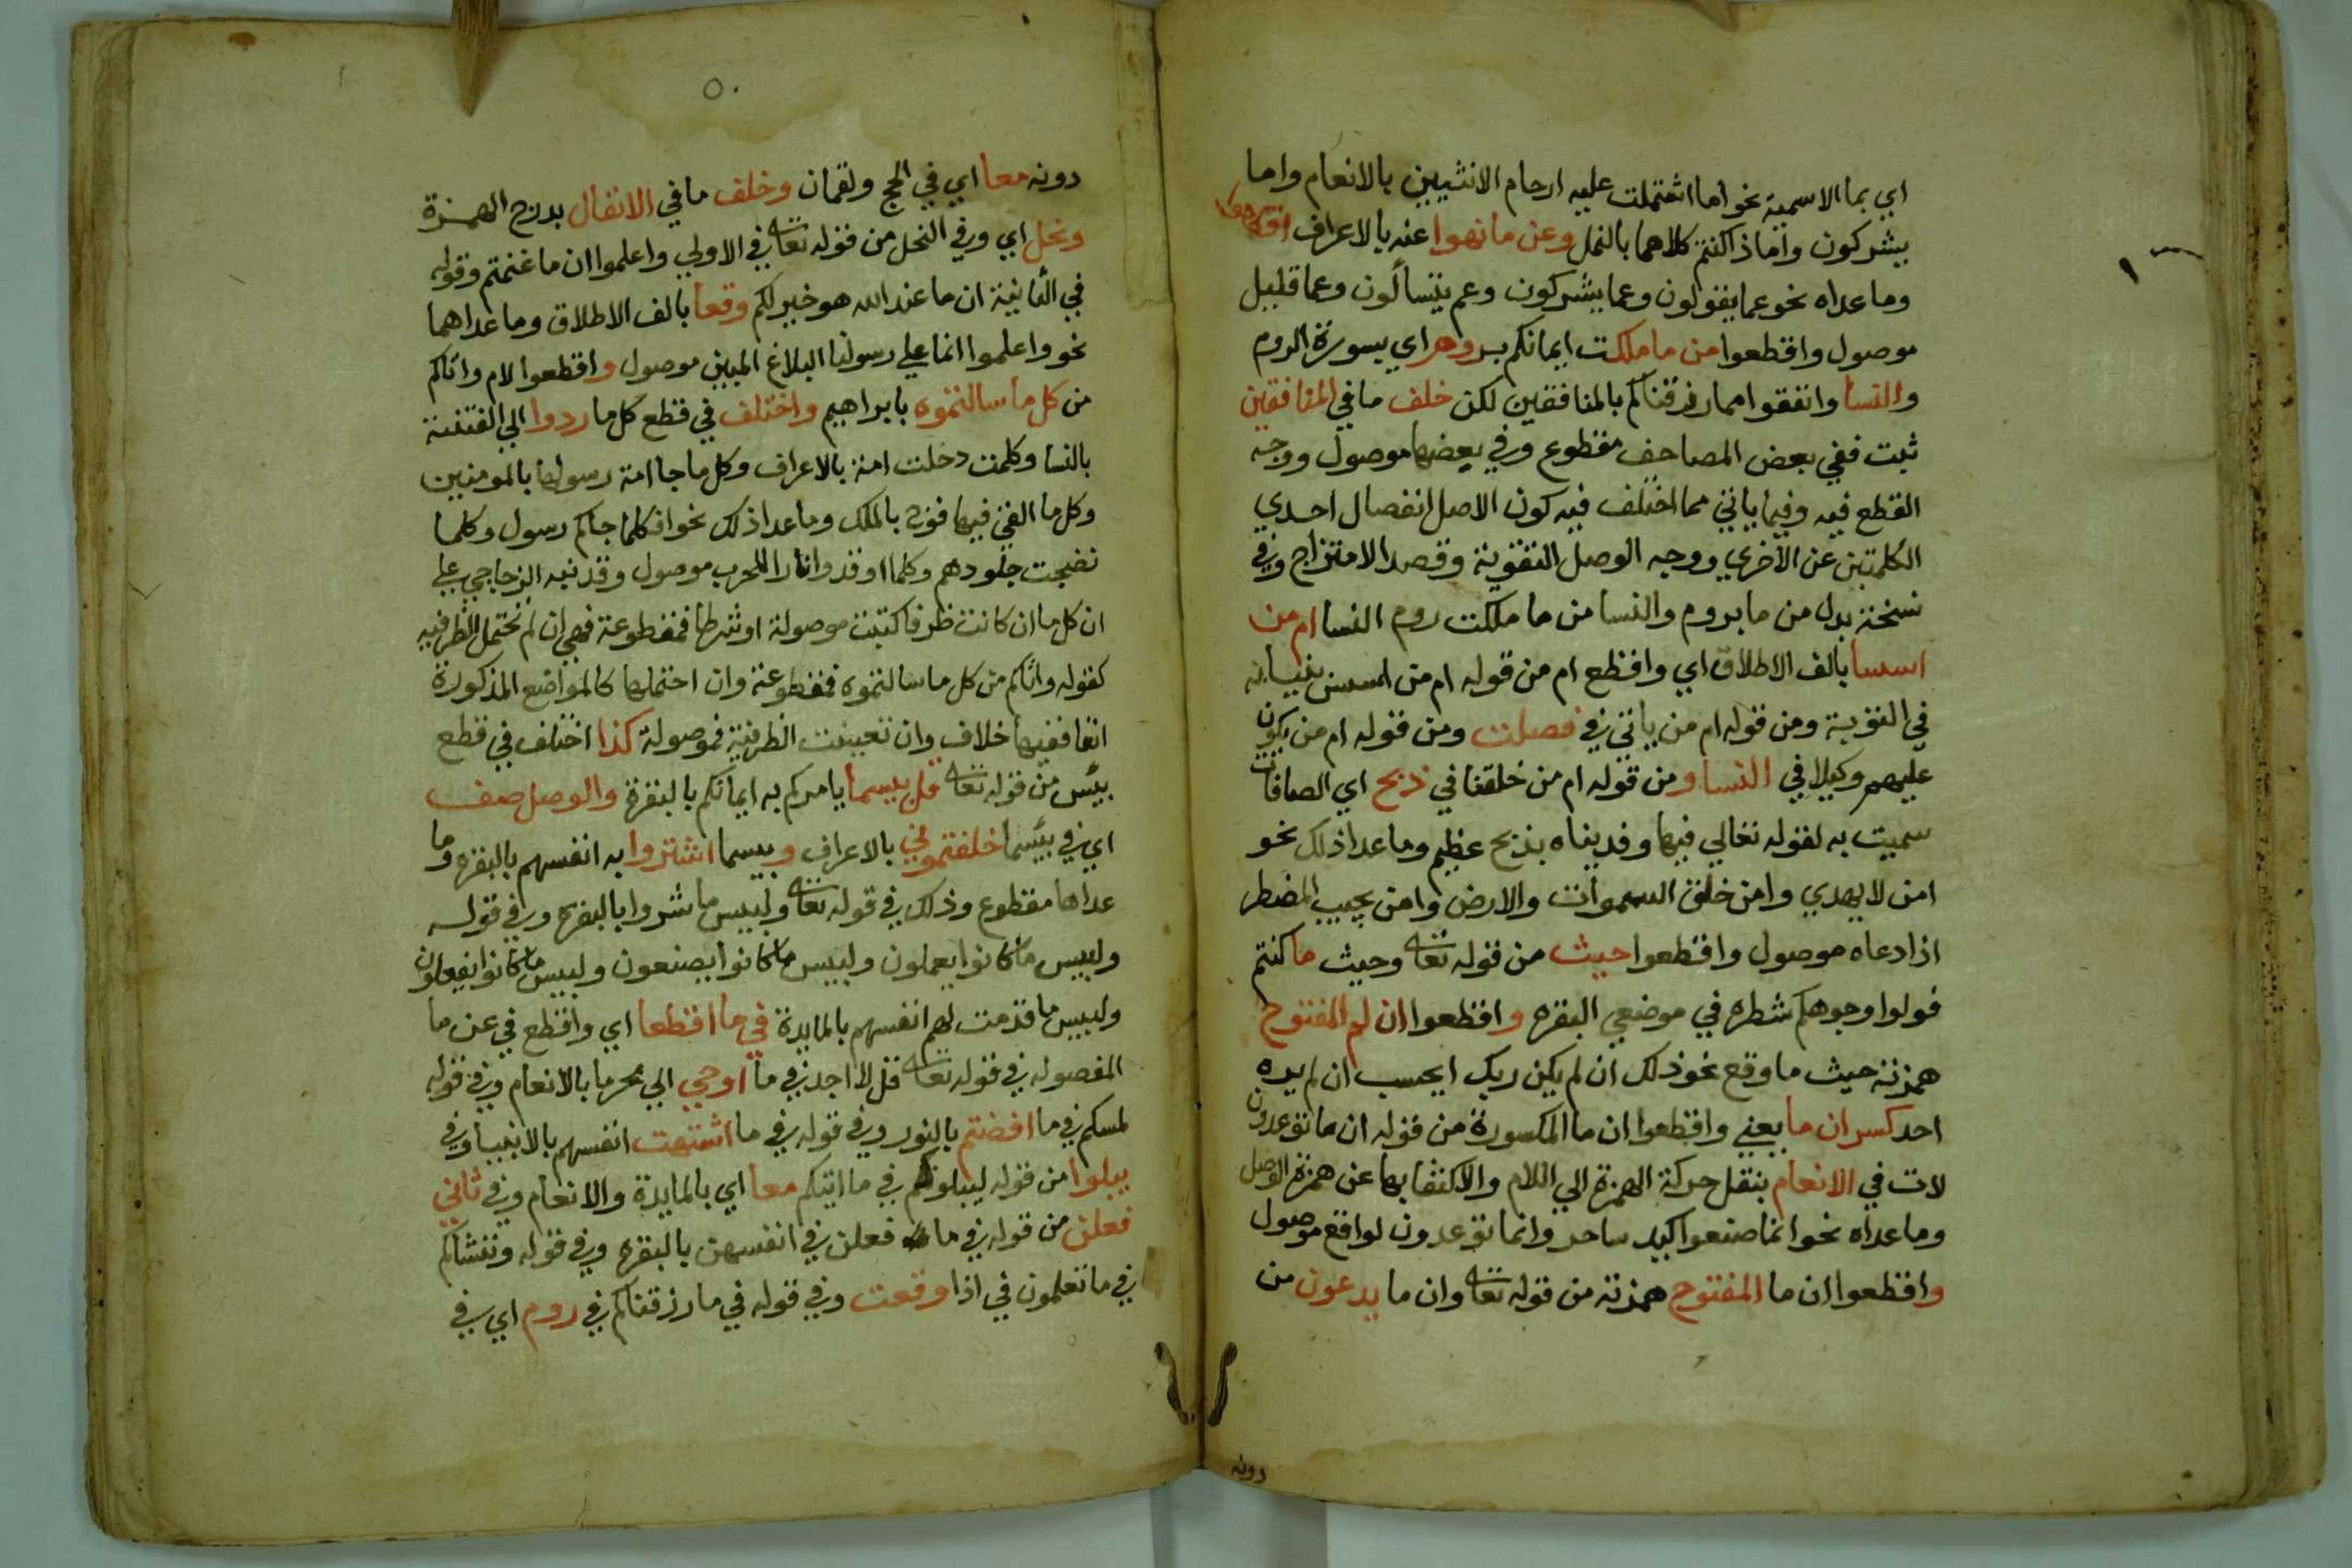 اي بما الاسمية نحو اما اشتملت عليه ارحام الانثيين بالانعام واما
يشركون واماذا كنتم كلاهما بالنمل وعن ما نهوا عنه بالاعراف اقطعوا
وما عداه نحو عما يقولون وعما يشركون وعم يتسألون وعما قليل
موصول واقطعوا من ما ملكت ايمانكم بروم اي بسورة الروم
والنسا وانفقوا مما رزقناكم بالمنافقين لكن خلف ما في المنافقين
ثبت ففي بعض المصاحف مقطوع وفي بعضها موصول ووجه
القطع فيه وفيما ياتي مما اختلف فيه كون الاصل انفصال احدي
الكلمتين عن الاخري ووجه الوصل التقوية وقصد الامتزاج وفي
نسخة بدل من ما بروم والنسا من ما ملكت روم النسا ام من
اسسا بالف الاطلاق اي واقطع ام من قوله ام من اسس بنيانه
في التوبة ومن قوله ام من ياتي في فصلت ومن قوله ام من يكون
عليهم وكيلا في النسا ومن قوله ام من خلقنا في ذبح اي الصافات
سميت به لقوله تعالي فيها وفديناه بذبح عظيم وما عدا ذلك نحو
امن لا يهدي وامن خلق السموات والارض وامن يجيب المضطر
اذا دعاه موصول واقطعوا حيث من قوله تعا وحيث ما كنتم
فولوا وجوهكم شطره في موضعي البقره واقطعوا ان لم المفتوح
همزته حيث ما وقع نحو ذلك ان لم يكن ربك ايحسب ان لم يره
احد كسر ان ما يعني واقطعوا ان ما المكسورة من قوله ان ما توعدون
لات في الانعام بنقل حركة الهمزة الي اللام والاكتفا بها عن همزة الوصل
وما عداه نحو انما صنعوا كيد ساحر وانما توعدون لواقع موصول
واقطعوا ان ما المفتوح همزته من قوله تعا وان ما يدعون من
دونه
٥٠
دونه معا اي في الحج ولقمان وخلف ما في الانفال بدرج الهمزة
ونحل اي وفي النحل من قوله تعا في الاولي واعلموا ان ما غنمتم وقوله
في الثانية ان ما عند الله هو خير لكم وقعا بالف الاطلاق وما عداهما
نحو واعلموا انما علي رسولنا البلاغ المبين موصول واقطعوا لام واتاكم
من كل ما سالتموه بابراهيم واختلف في قطع كل ما ردوا الي الفتنة
بالنسا وكلمت دخلت امة بالاعراف وكل ما جا امة رسولها بالمومنين
وكل ما القي فيها فوج بالملك وما عدا ذلك نحو افكلما جاكم رسول وكلما
نضجت جلودهم وكلما اوقدوا نارا للحرب موصول وقد نبه الزجاجي علي
ان كل ما ان كانت ظرفا كتبت موصولة او شرطا فمقطوعة فهي ان لم تحتمل الظرفيه
كقوله واتاكم من كل ما سالتموه فمقطوعة وان احتملها كالمواضع المذكورة
انفا ففيها خلاف وان تعينت الظرفية فموصولة كذا اختلف في قطع
بيس من قوله تعا قل بيسما يامركم به ايمانكم بالبقرة والوصل صف
اي في بيسما خلفتموني بالاعراف وبيسما اشتروا به انفسهم بالبقره وما
عداها مقطوع وذلك في قوله تعا ولبيس ما شروا بالبقره وفي قوله
ولبيس ما كانوا يعملون ولبيس ما كانوا يصنعون ولبيس ما كانوا يفعلون
ولبيس ما قدمت لهم انفسهم بالمايدة في ما اقطعا اي واقطع في عن ما
المفصوله في قوله تعا قل لا اجد في ما اوحي الي محرما بالانعام وفي قوله
لمسكم في ما افضتم بالنور وفي قوله في ما اشتهت انفسهم بالانبيا وفي
يبلوا من قوله ليبلوكم في ما اتيكم معا اي بالمايدة والانعام وفي ثاني
فعلن من قوله في ما فعلن في انفسهن بالبقره وفي قوله وننشاكم
في ما تعلمون في اذا وقعت وفي قوله في ما رزقناكم في روم اي في